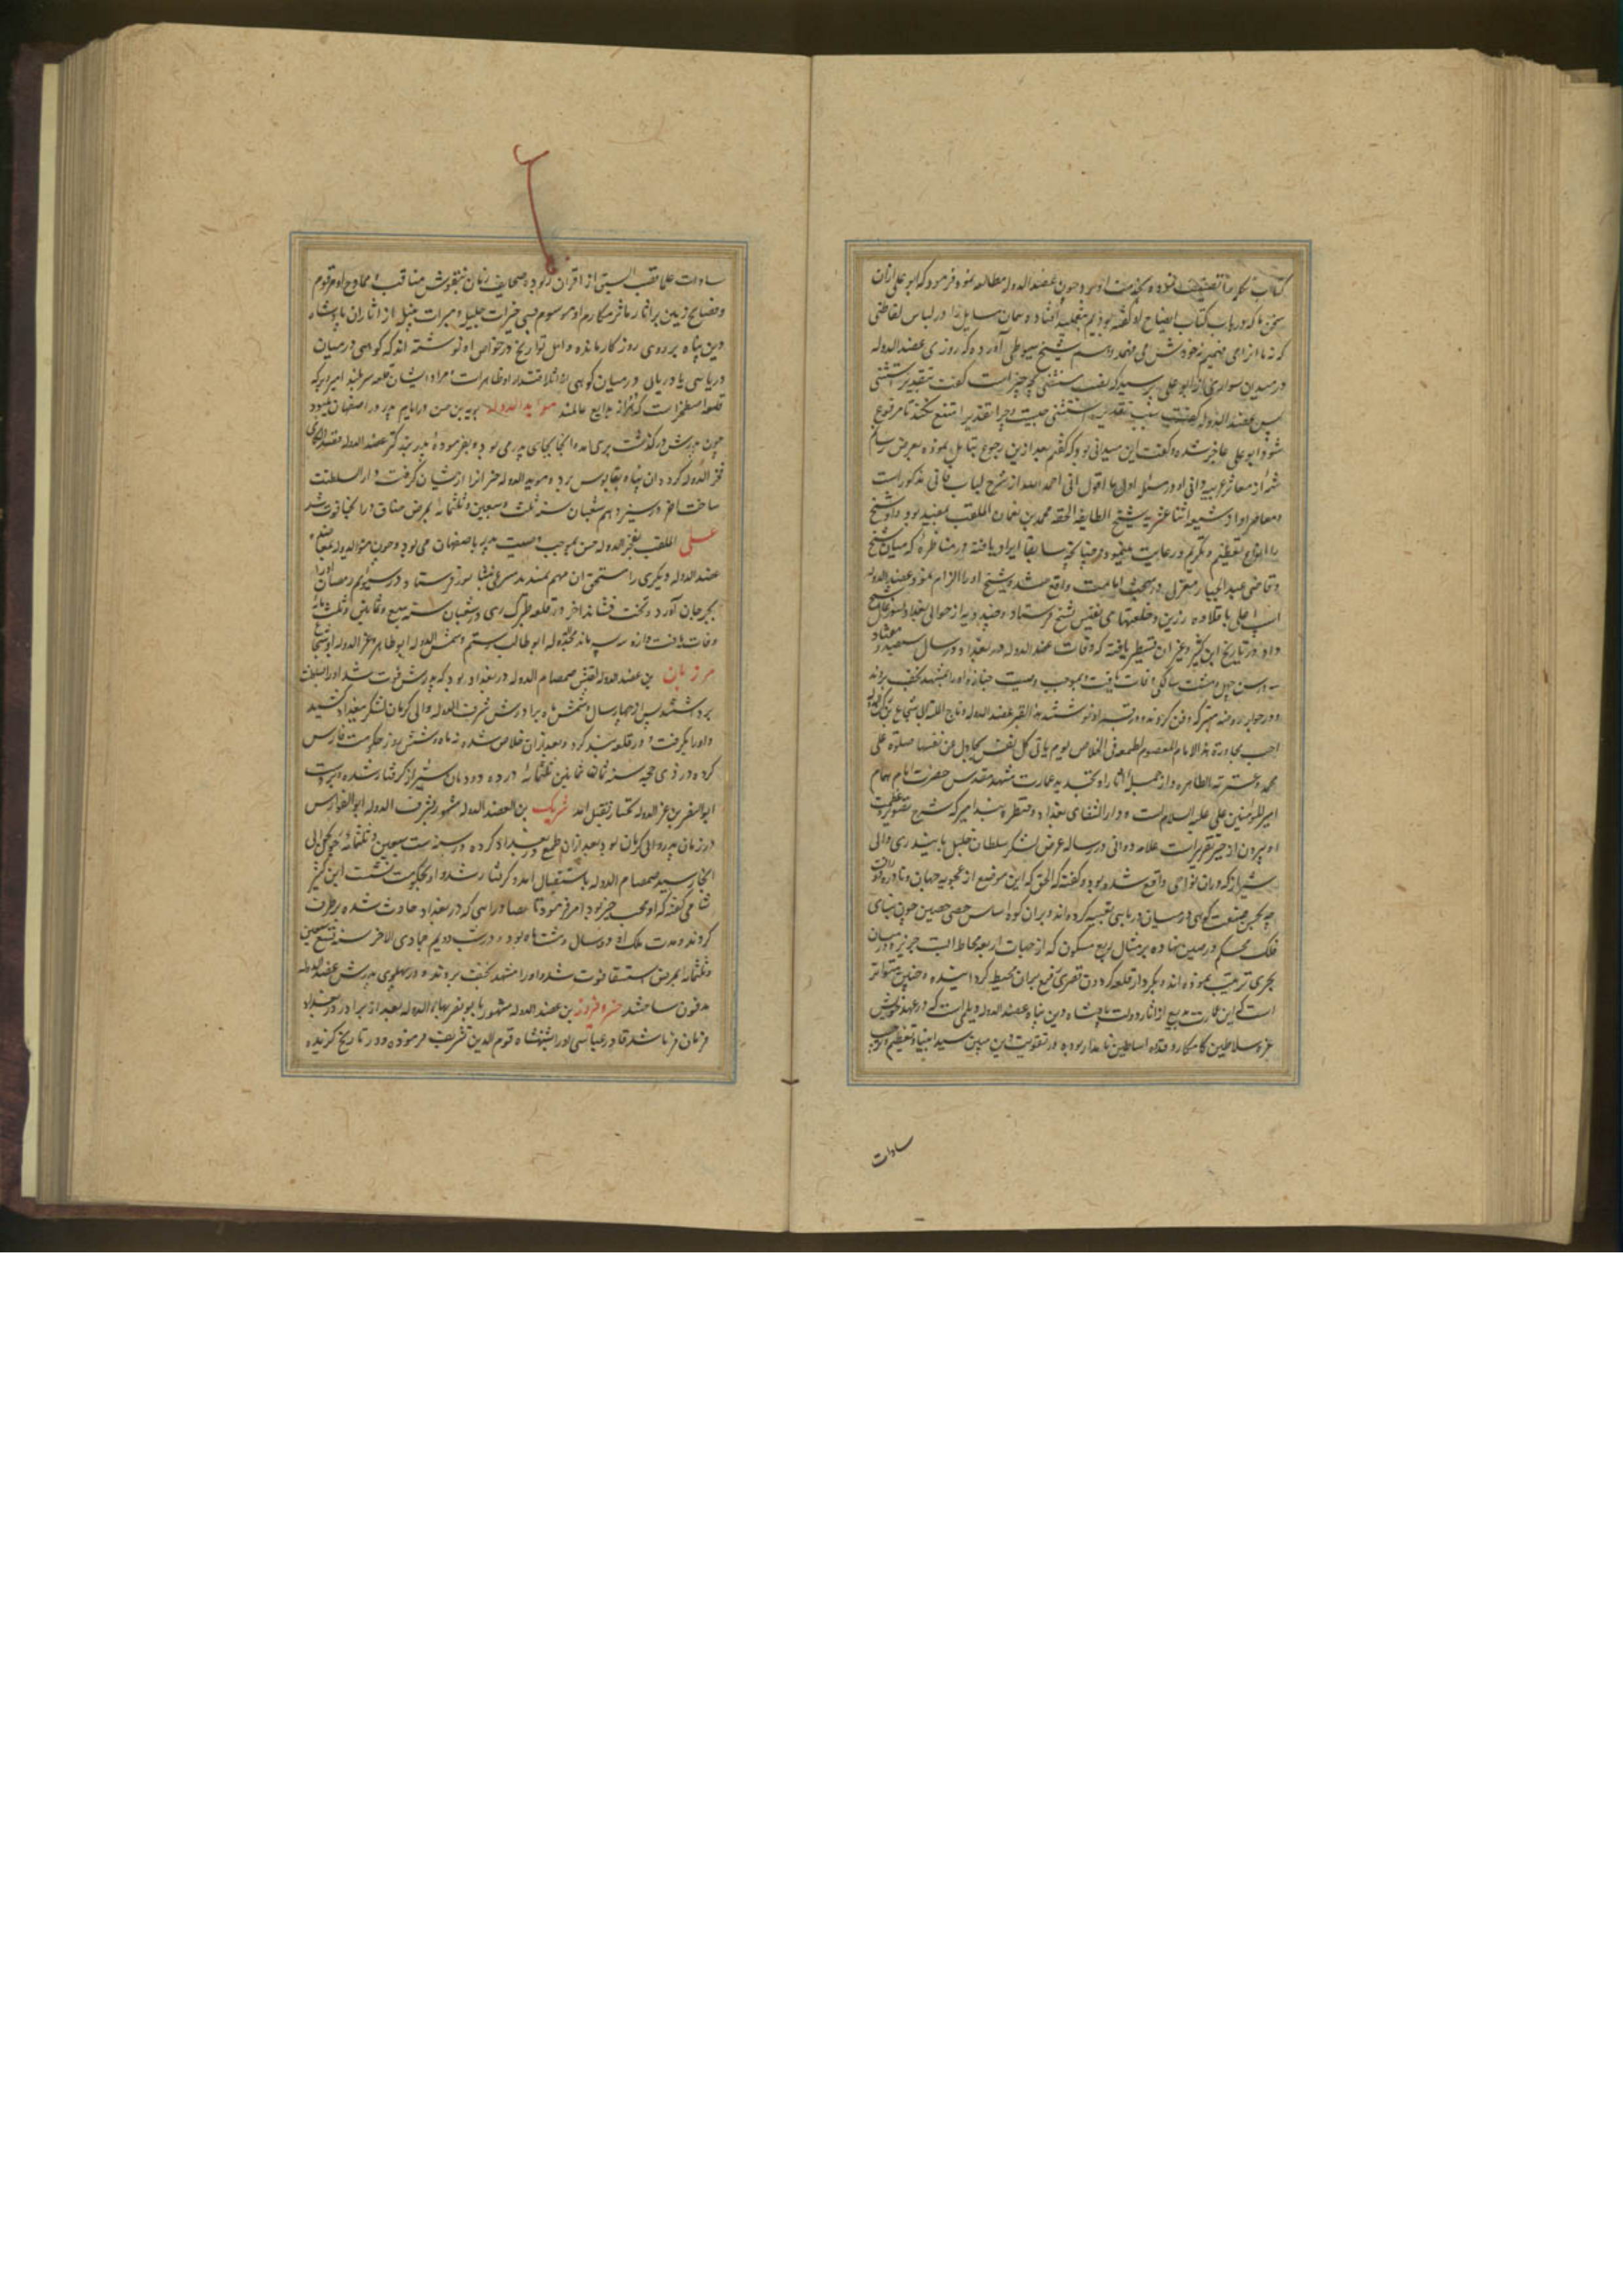 کتاب تکمله را تصنیف نموده بخدمت او برد و چون عضدالدوله مطالعه نمود فرمود که ابو علی ازان
سخن ما که در باب کتاب ایضاح او گفته بودیم
که نه ما ازا می فهمیم نه خودش می فهمد و هم شیخ سیوطی آورده که روزی عضدالدوله
در میدان سواری از ابو علی پرسید که نصب مستثنی بچه چیز است گفت بتقدیر استثنی
پس عضدالدوله گفت سبب تقدیر استثنی چیست و چرا تقدیر امتنع نکند تا مرفوع
شود ابو علی عاجز شده و گفت این میدانی بود که گفتم بعد ازین رجوع بتامل نموده بعرض رسانم
شمه از معاثر عربیه دانی او در مسئله اول ما اقول انی احمد الله از شرح لباب فانی مذکور است
و معاصر او از شیعه اثنا عشریه شیخ الطایفه الحقه محمد بن نعمان الملقب بمفید بود و او شیخ
را انواع تعظیم و تکریم و رعایت مینمود و چنانچه سابقا ایراد یافته در مناظره که میان شیخ
و قاضی عبدالجبار معتزلی در مبحث امامت واقع شد و شیخ او را الزام نمود عضدالدوله
اسپ اعلی با قلاده زرین و خلعتهای نفیس بشیخ فرستاد و چند دیه از حوالی بغداد
داد و در تاریخ ابن کثیر و غیر آن تسطیر یافته که وفات عضدالدوله در بغداد در سال سیصد و هفتاد
سه در سن چهل و هشت سالگی وفات یافت و بموجب وصیت جنازه او را بمشهد نجف بردند
و در جوار روضه مبرکه دفن کردند و در قبر او نوشتند هذا القبر عضدالدوله و تاج المله ابی شجاع بن رکن الدوله
احب مجاورة هذا الامام المعصوم لطمعه فی الخلاص یوم یاتی کل نفس تجادل عن نفسها صلوة علی
محمد و عشرته الطاهره و از جمله آثار او تجدید عمارت مشهد مقدس حضرت امام همام
امیرالمومنین علی علیه السلام است و دار الشفای بغداد و قنطره بند امیر که شرح
او بیرون از حیز تقریر است علامه دوانی در رساله عرض لشکر سلطان خلیل بایندری والی
شیراز که دران نواحی واقع شده بود گفته که الحق که این موضع از عجوبه جهان و نادره
چه بحسن صنعت کوهی در میان دریایی تعبیه کرده اند و بران کوه اساس حصن حصین چون بنای
فلک محکم و رصین نهاده بر مثال ربع مسکون که از جهات اربعه محاط است
بحری ترتیب نموده اند و بکردار قلعه گردون قصری رفیع بران محیط گردانیده و چنین متواتر
است که این عمارت بدیع از آثار دولت پادشاه دین پناه عضدالدوله دیلمی است که در عهد خویش
غره سلاطین کامکار و قدوه اساطین نامدار بوده در تقویت دین مبین سید انبیا و تعظیم
سادات
سادات علیا قصب السبق از اقران ربوده صحایف زمان بنقوش مناقب و ممادح او مرقوم
و فصایح زمین بر آثار مآثر مکارم او موسوم بسی خیرات جلیل و مبرات جزیل از آثار آن پادشاه
دین پناه بر روی روزگار مانده و اهل تواریخ در خواص او نوشته اند که کوهی در میان
دریایی یا دریایی در میان کوهی از آثار اقتدار او ظاهر است و مراد ایشان قلعه سربند امیر و برکه
قلعه اصطخر است که از بدایع عالمند موید الدوله بویه بن حسن در ایام پدر در اصفهان میبود
چون پدرش در گذشت بری آمد و انجا بجای پدر می بود و بفرموده برادر بزرگتر عضدالدوله
فخرالدوله کرد و ان پناه بقابوس برد و موید الدوله جرجانرا از ایشان گرفت و دار السلطنت
ساخت آخر در سیزدهم شعبان سنه ثلث و سبعین و ثلثمائه بمرض خناق در انجا فوت شد
علی الملقب بفخرالدوله حسن بموجب وصیت پدر باصفهان می بود و چون موید الدوله
عضدالدوله دیگری را مستحق ان مهم ندیدند کس بنیشابور فرستاد و در سیوم رمضان او را
بجرجان آورد و تخت نشاند آخر در قلعه طبرک ری در شعبان سنه سبع و ثمانین و ثلثمائه
وفات یافت و ازو سه پسر ماند مجدالدوله ابو طالب رستم و شمس الدوله ابو طاهر و عزالدوله ابو شجاع
مرزبان بن عضدالدوله لقبش صمصام الدوله در بغداد بود که پدرش فوت شد او را بسلطنت
برداشتند پس از چهار سال و شش ماه برادرش شرف الدوله والی کرمان لشکر ببغداد کشید
و او را بگرفت و در قلعه بند کرد و بعد ازان خلاص شده نه ماه و شش روز حکومت فارس
کرد در ذی حجه سنه ثمان ثمانین ثلثمائه در ده دودمان شیراز گرفتار شده و بر دست
ابو النصر بن عزالدوله بختیار بقتل آمد شریک بن العضد الدوله مشهور بشرف الدوله ابو الفوارس
در زمان پدر والی کرمان بود بعد ازان طمع در بغداد کرده و در سنه ست سبعین و ثلثمائه چون بحوالی
انجا رسید صمصام الدوله باستقبال آمد و گرفتار شد و او بحکومت نشست ابن کثیر
شامی گفته که او محب خیر بود و امر فرمود تا مصادراتی که در بغداد حادث شده بر طرف
کردند و مدت ملک او دو سال و هشت ماه بود و در شب دویم جمادی الاخر سنه تسع سبعین
و ثلثمائه بمرض استسقا فوت شد و او را مشهد نجف بردند و در پهلوی پدرش عضدالدوله
مدفون ساختند خسرو فیروز بن عضدالدوله مشهور بابو نصر بهاء الدوله بعد از برادر در بغداد
فرمان فرما شد قادر عباسی او را شهنشاه قوم الدین تشریف فرموده و در تاریخ گزیده